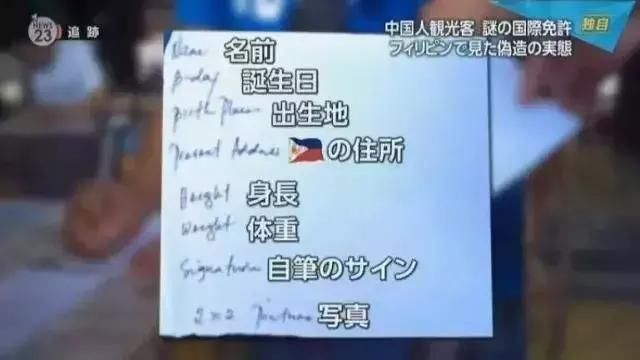 NEWS 23 追跡
中国人観光客 謎の国際免許 独自
フィリピンで見た偽造の実態
Name 名前
B-day 誕生日
Birth Place 出生地
Present Address の住所
Height 身長
Weight 体重
Signature 自筆のサイン
2×2 Picture 写真